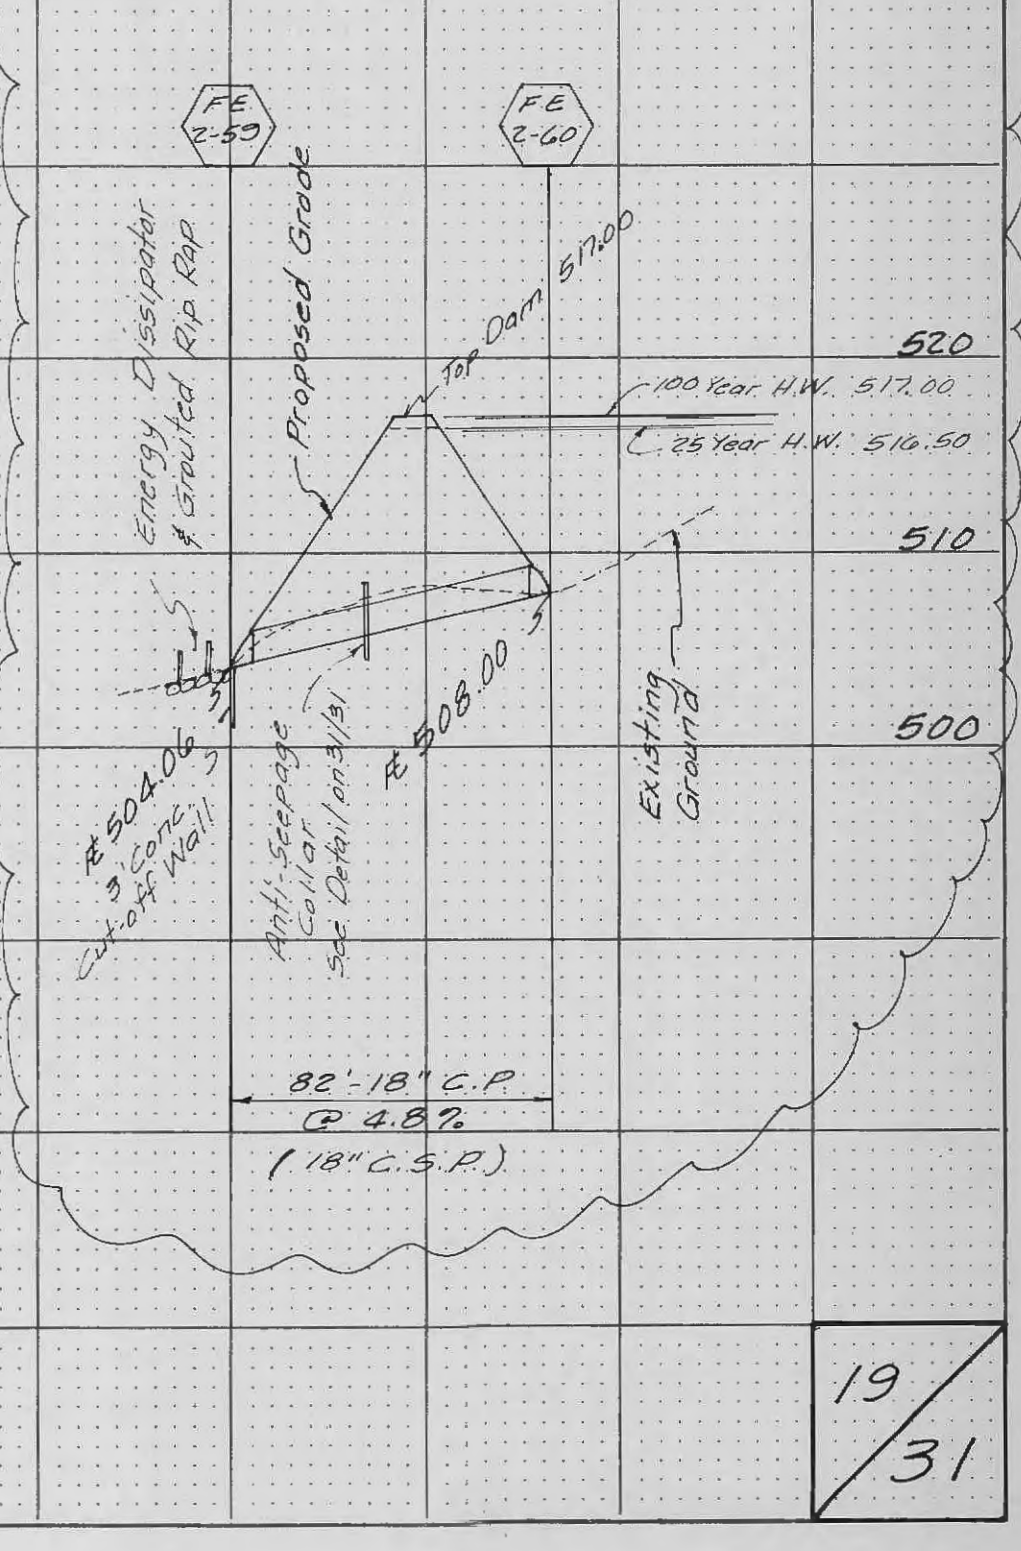 FE
2-59
FE
2-60
Energy Dissipator
& Grouted Rip Rap
Proposed Grade
Top Dam 517.00
520
100 Year H.W. 517.00
25 Year H.W. 516.50
510
500
504.06
3' Conc.
Cut-off Wall
Anti-Seepage
Collar
See Detail on 31/31
508.00
Existing
Ground
82'-18" C.P.
@ 4.8%
(18" C.S.P.)
19
31